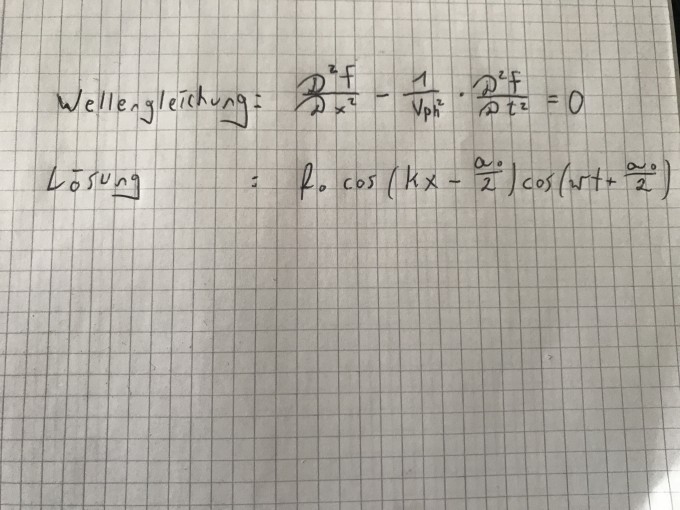 Wellengleichung: ∂²f/∂x² - 1/Vph² · ∂²f/∂t² = 0
Lösung : f₀ cos(kx - α₀/2) cos(ωt + α₀/2)